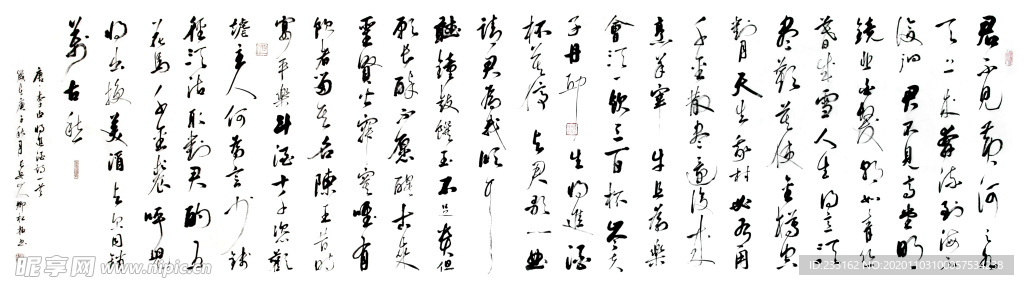 君不見黃河之水
天上來奔流到海不
復回君不見高堂明
鏡悲白髮朝如青絲
暮成雪人生得意須
盡歡莫使金樽空
對月天生我材必有用
千金散盡還復來
烹羊宰牛且為樂
會須一飲三百杯岑夫
子丹邱生將進酒
杯莫停與君歌一曲
請君為我傾耳
聽鐘鼓饌玉不足貴但
願長醉不願醒古來
聖賢皆寂寞唯有
飲者留其名陳王昔時
宴平樂斗酒十千恣歡
謔主人何為言少錢
徑須沽取對君酌五
花馬千金裘呼兒
將出換美酒與爾同銷
萬古愁
唐李白將進酒詩一首
歲在庚子秋月
昵享网 www.nipic.cn
ID:235162 NO:20201103100957534